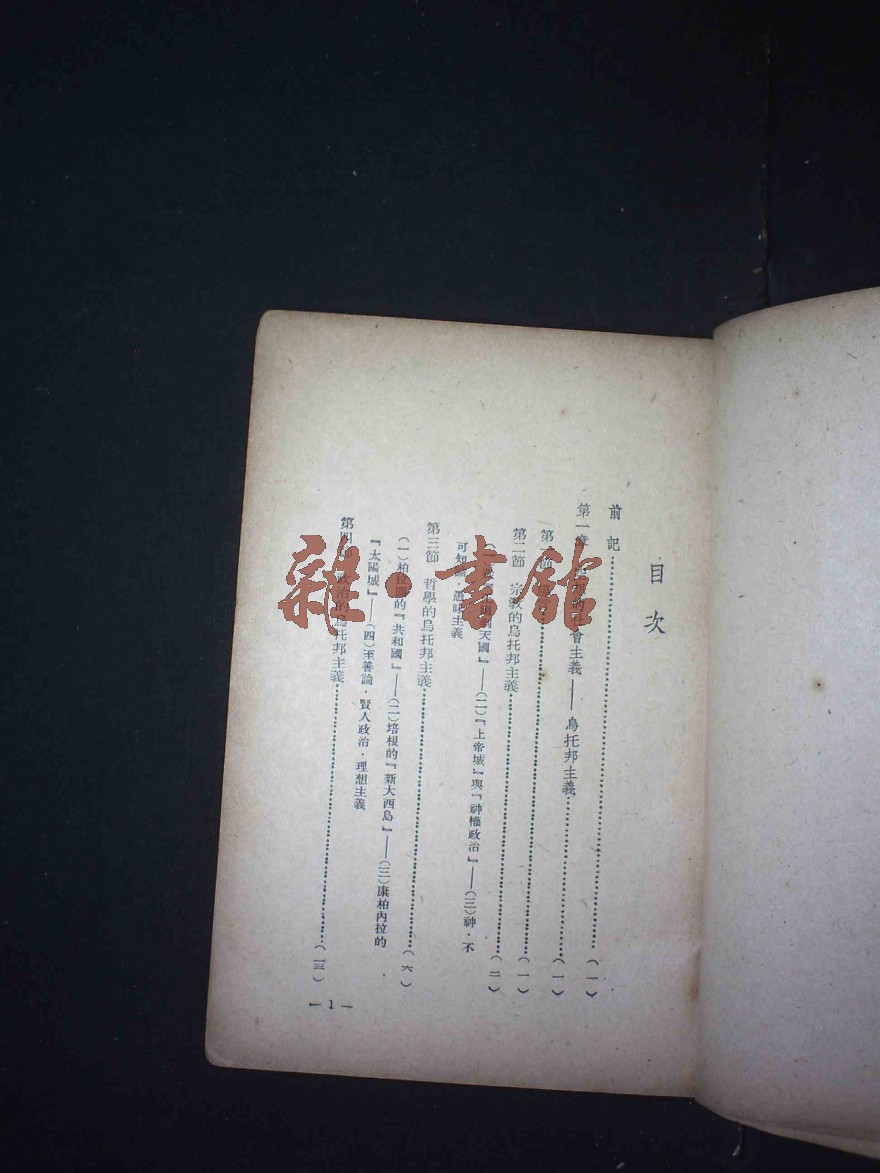 目次
前記 (一)
第一章 的社會主義——烏托邦主義 (一)
第一節 (一)
第二節 宗教的烏托邦主義 (二)
天國』——(二)『上帝城』與『神權政治』——(三)神·不
可知論·愚昧主義
第三節 哲學的烏托邦主義 (六)
(一)柏拉圖的『共和國』——(二)培根的『新大西島』——(三)康柏內拉的
『太陽城』——(四)至善論·賢人政治·理想主義
第四節 政治的烏托邦主義 (一三)
— 1 —
雜·書館